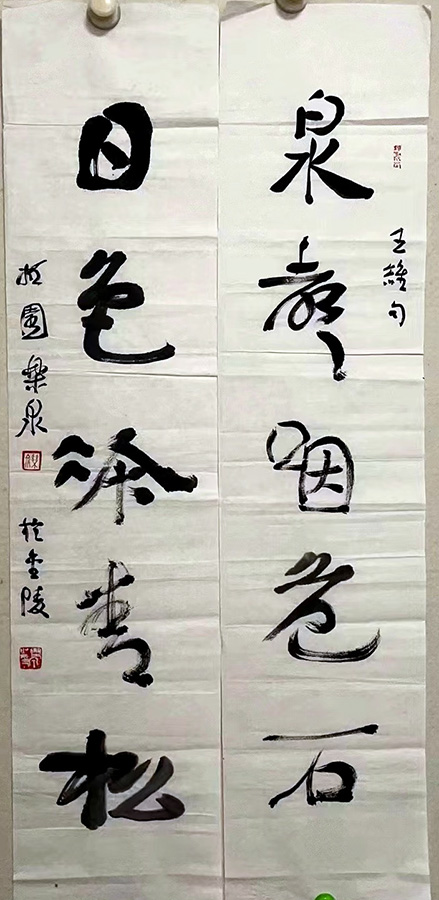 泉聲咽危石
王維句
日色冷青松
園樂泉
於金陵